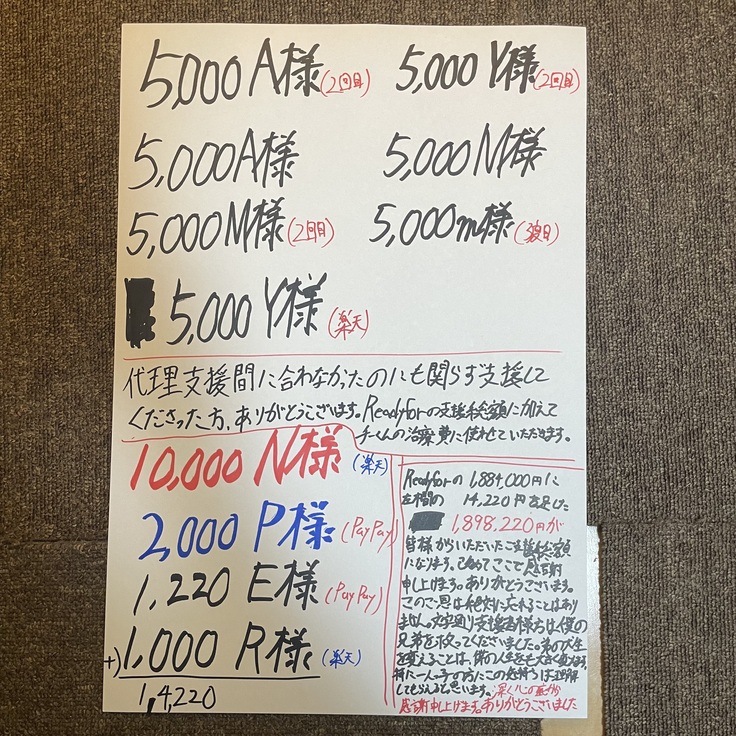 5,000 A様(2回目) 5,000 Y様(2回目)
5,000 A様 5,000 M様
5,000 M様(2回目) 5,000 m様(3回目)
5,000 Y様(楽天)
代理支援間に合わなかったのにも関らず支援して
くださった方、ありがとうございます。Readyforの支援総額に加えて
チーくんの治療費に使わせていただきます。
10,000 N様(楽天)
2,000 P様(PayPay)
1,220 E様(PayPay)
+)1,000 R様(楽天)
1,4,220
Readyforの1,884,000円に
左欄の14,220円を足した
1,898,220円が
皆様からいただいたご支援総額
になります。改めてここで感謝
申し上げます。ありがとうございます。
このご恩は絶対に忘れることはあり
ません。文字通り支援者様方は僕の
兄弟を救ってくださいました。弟の人生
を変えることは、僕の人生をも大きく変えます。
特に一人っ子の方にこの気持ちは理解
してもらえると思います。深く心の底から
感謝申し上げます。ありがとうございました